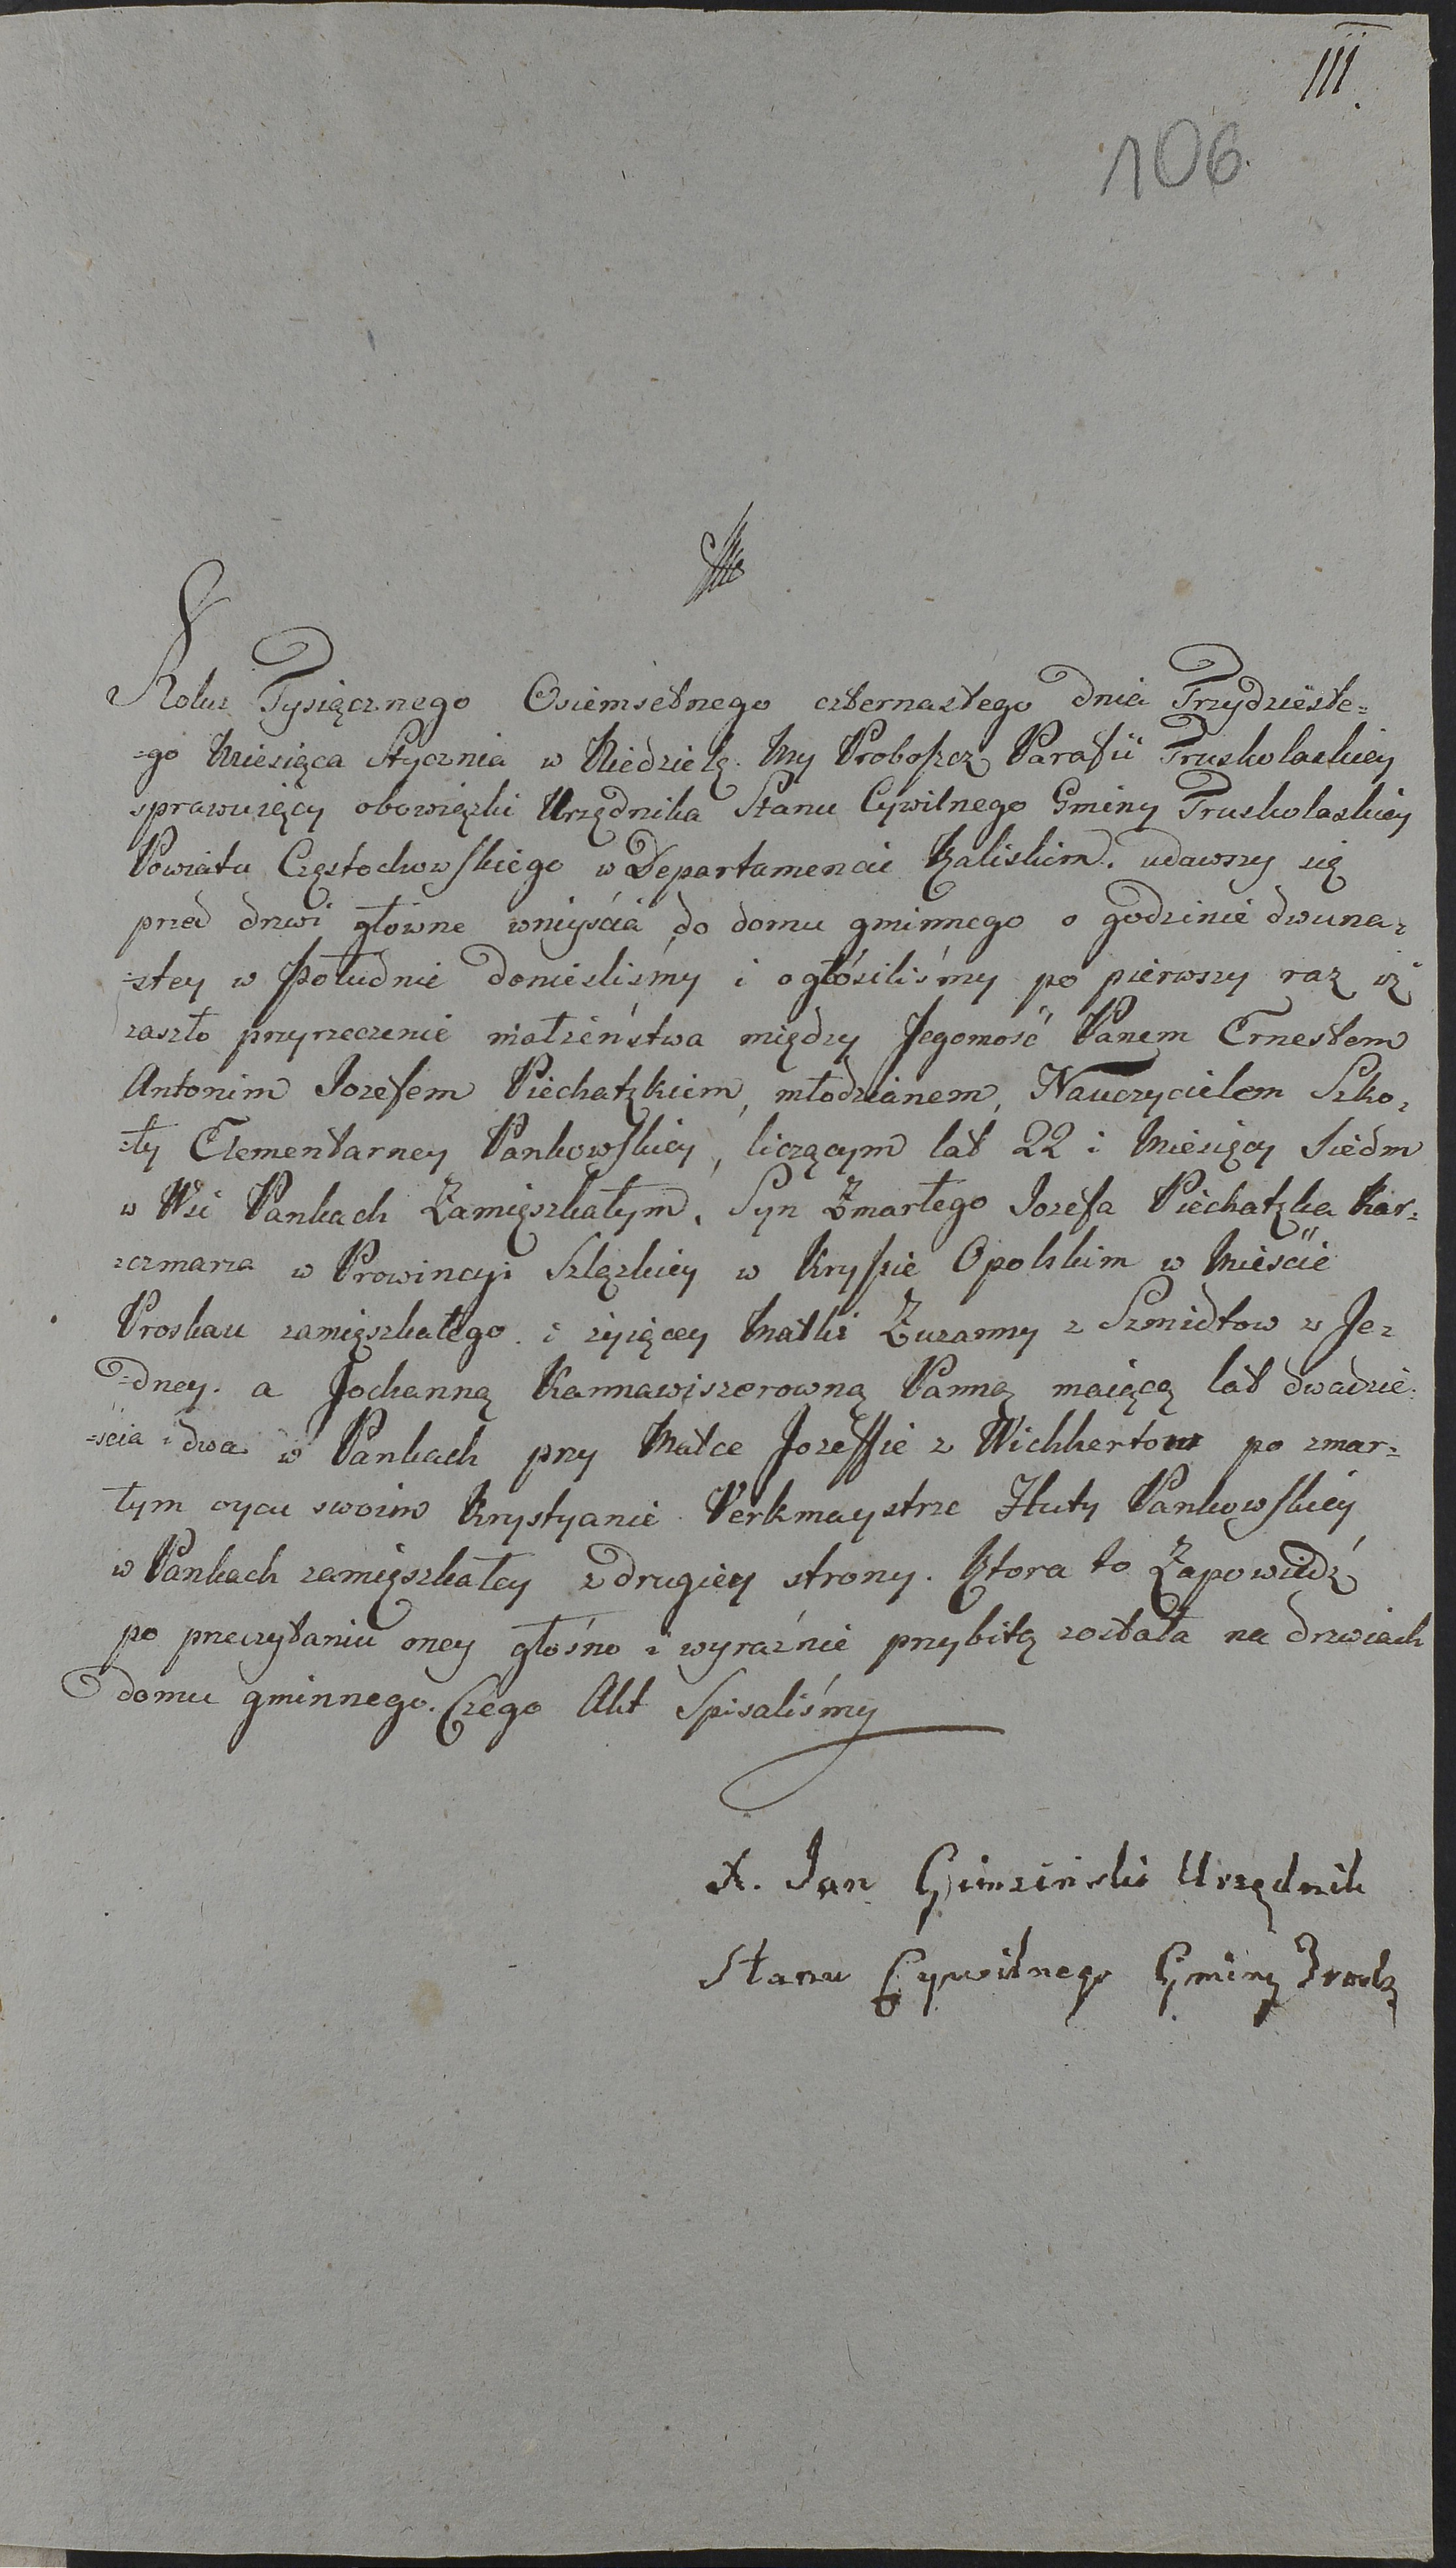 III.
106.
Roku Tysiącznego Osiemsetnego czternastego dnia Trzydzieste=
=go Miesiąca Stycznia w Niedzielę. My Proboszcz Parafii Truskolaskiey
sprawuiący obowiązki Urzędnika Stanu Cywilnego Gminy Truskolaskiey
Powiatu Częstochowskiego w Departamencie Kaliskim. udawszy się
przed drzwi główne wniyścia do domu gminnego o godzinie dwuna=
=stey w południe donieśliśmy i ogłosiliśmy po pierwszy raz iż
zaszło przyrzeczenie małżeństwa między Jegomość Panem Ernestem
Antonim Jozefem Piechatzkiem, młodzianem, Nauczycielem Szko=
=ły Elementarney Pankowskiey, liczącym lat 22 i Miesięcy Siedm
w Wsi Pankach Zamięszkałym. Syn Zmarłego Jozefa Piechatzka Kar=
=czmarza w Prowincyi Szlązkiey w Kryssie Opolskim w Mieście
Proskau zamięszkałego. i żyiącey Matki Zuzanny z Szmidtow z Je=
=dney. a Jochanną Kannawiszerowną Panną maiącą lat dwadzie=
=ścia i dwa w Pankach przy Matce Jozeffie z Wichhertow po zmar=
łym oycu swoim Krystyanie Verkmaystrze Huty Pankowskiey
w Pankach zamięszkałey z drugiey strony. Ktora to Zapowiedź
po przeczytaniu oney głośno i wyraźnie przybitą została na drzwiach
domu gminnego. Czego Akt Spisaliśmy
X. Jan Gimziński Urzędnik
Stanu Cywilnego Gminy